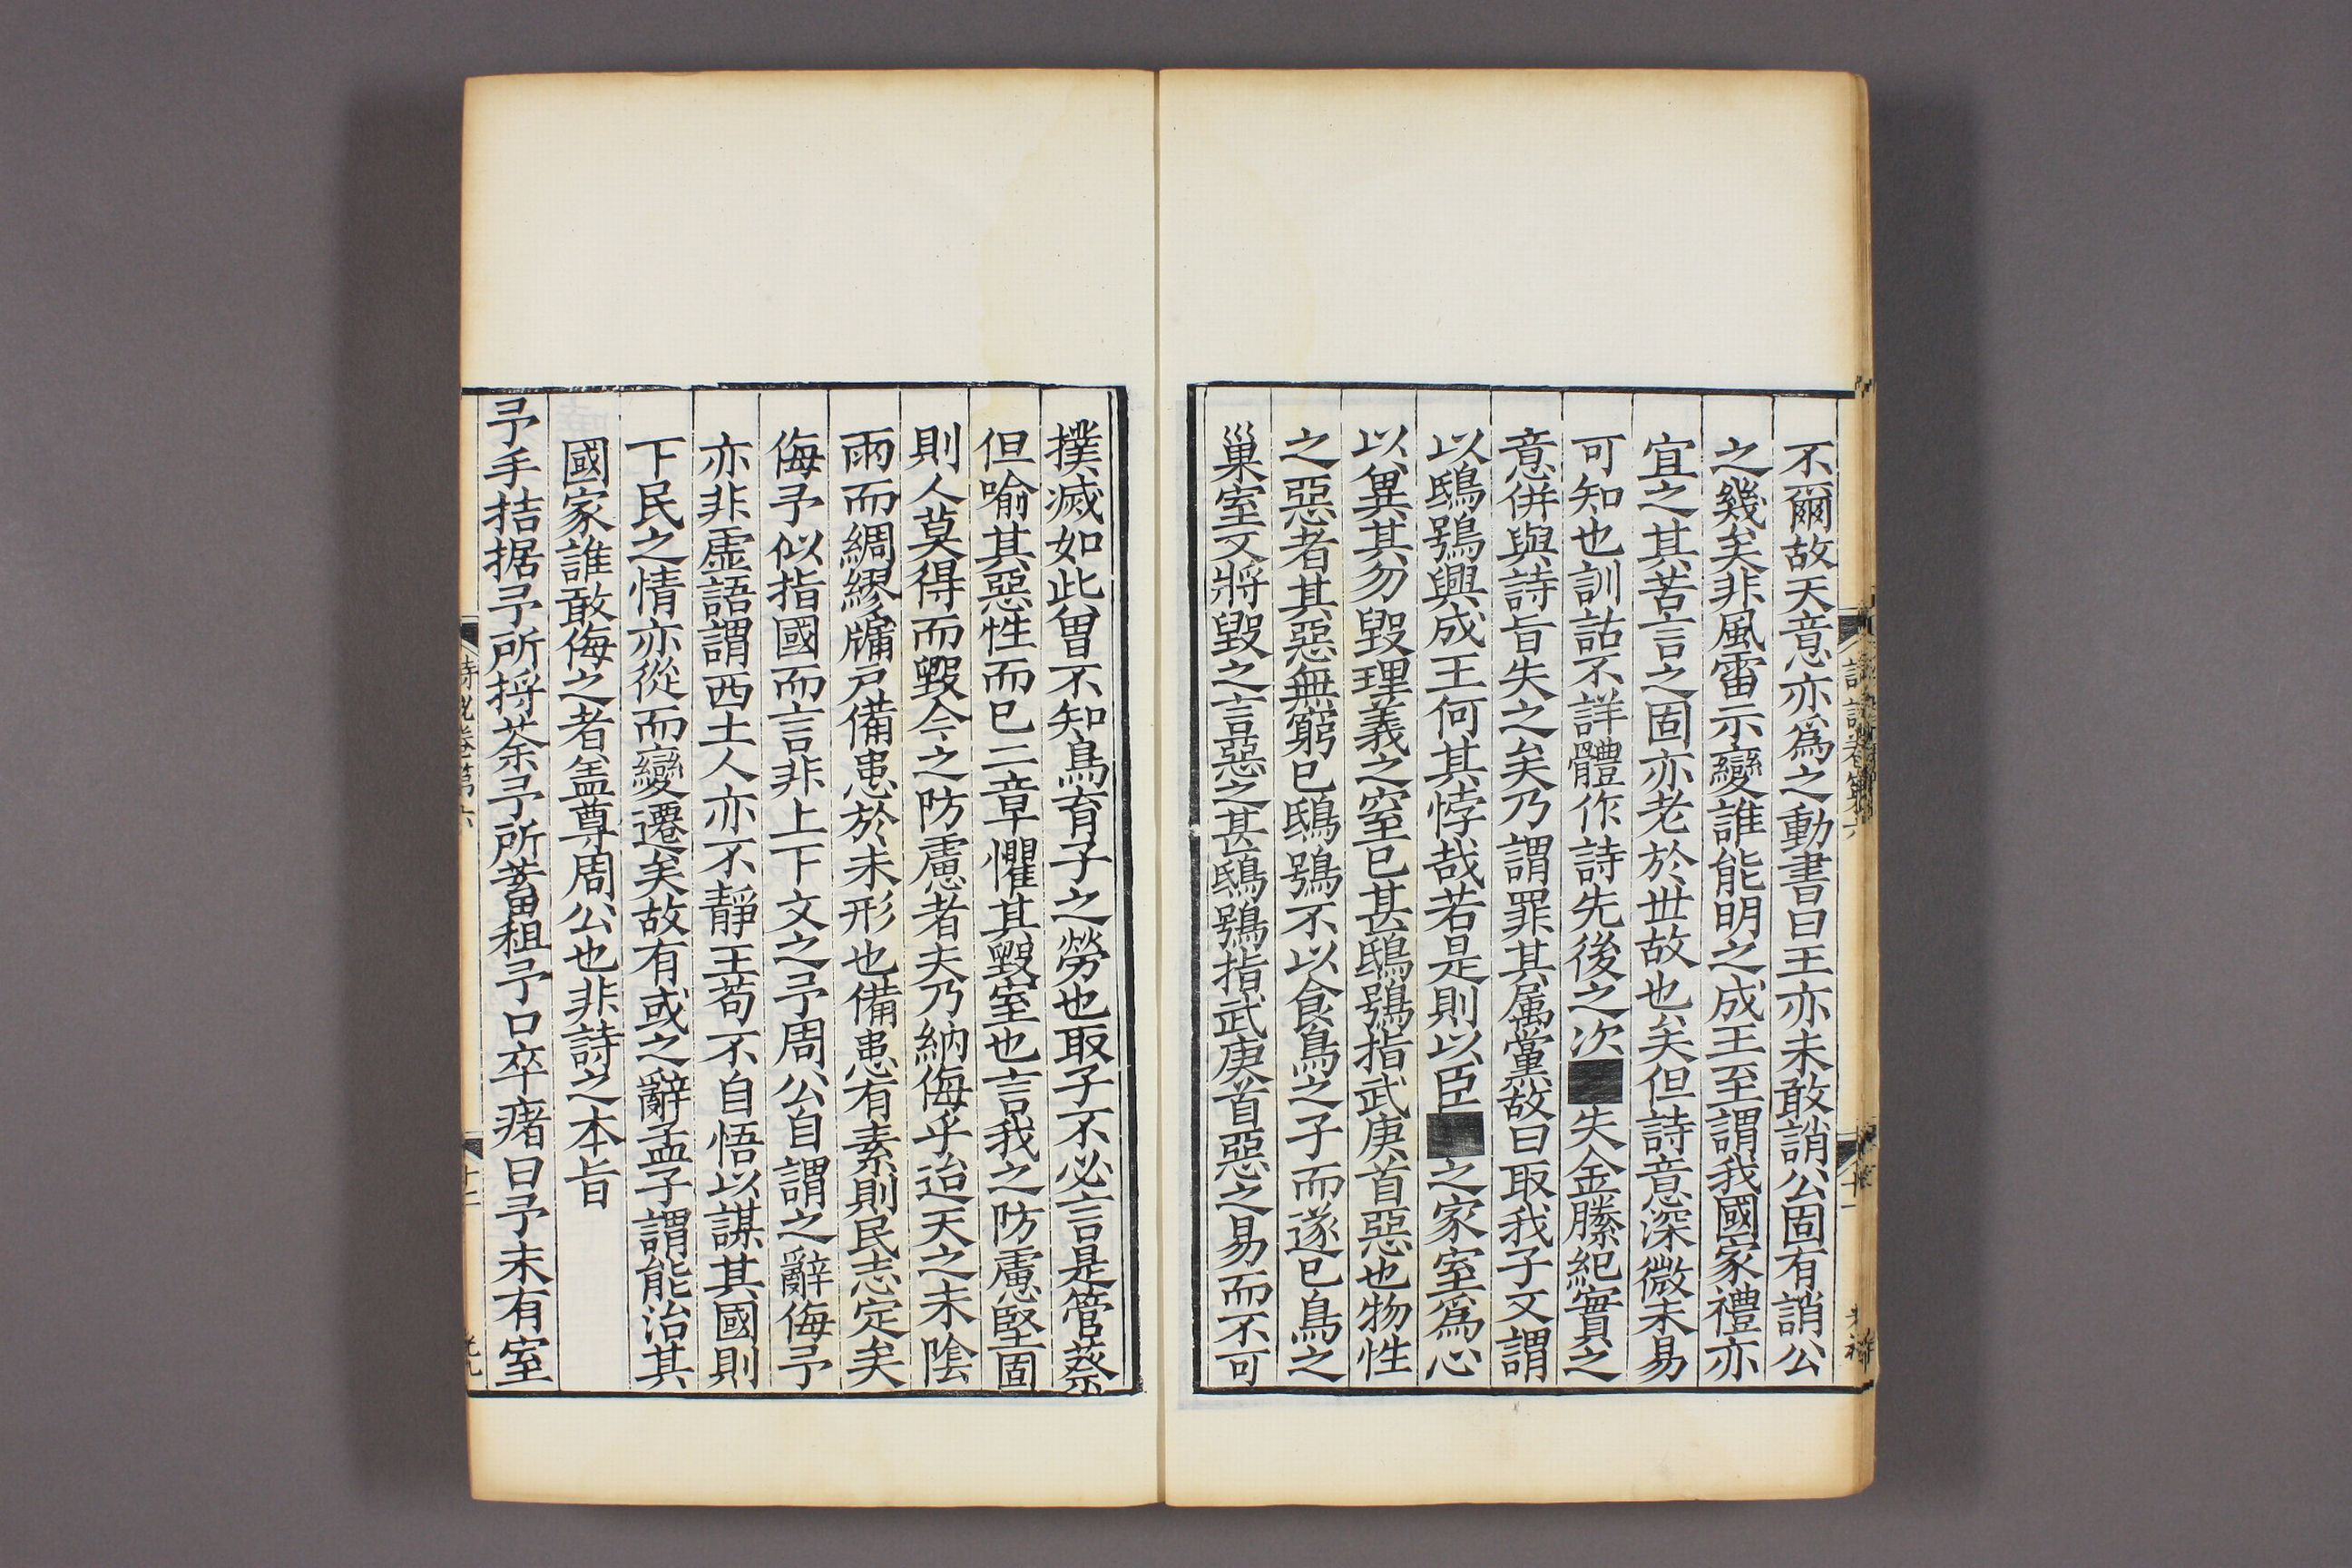 不爾故天意亦爲之動書曰王亦未敢誚公固有誚公
之幾矣非風雷示變誰能明之成王至謂我國家禮亦
宜之其苦言之固亦老於世故也矣但詩意深微未易
可知也訓詁不詳體作詩先後之次■失金縢紀實之
意併與詩旨失之矣乃謂罪其属黨故曰取我子又謂
以鴟鴞興成王何其悖哉若是則以臣■之家室爲心
以兾其勿毀理義之窒已甚鴟鴞指武庚首惡也物性
之惡者其惡無窮已鴟鴞不以食鳥之子而遂已鳥之
巢室又將毀之言惡之甚鴟鴞指武庚首惡之易而不可
撲滅如此曾不知鳥育子之勞也取子不必言是管蔡
但喻其惡性而已二章懼其毀室也言我之防慮堅固
則人莫得而毀今之防慮者夫乃納侮乎迨天之未陰
雨而綢繆牖戸備患於未形也備患有素則民志定矣
侮予似指國而言非上下文之予周公自謂之辭侮予
亦非虛語謂西土人亦不靜王苟不自悟以謀其國則
下民之情亦從而變遷矣故有或之辭孟子謂能治其
國家誰敢侮之者盖尊周公也非詩之本旨
予手拮据予所捋荼予所蓄租予口卒瘏曰予未有室
詩説卷第六
十二